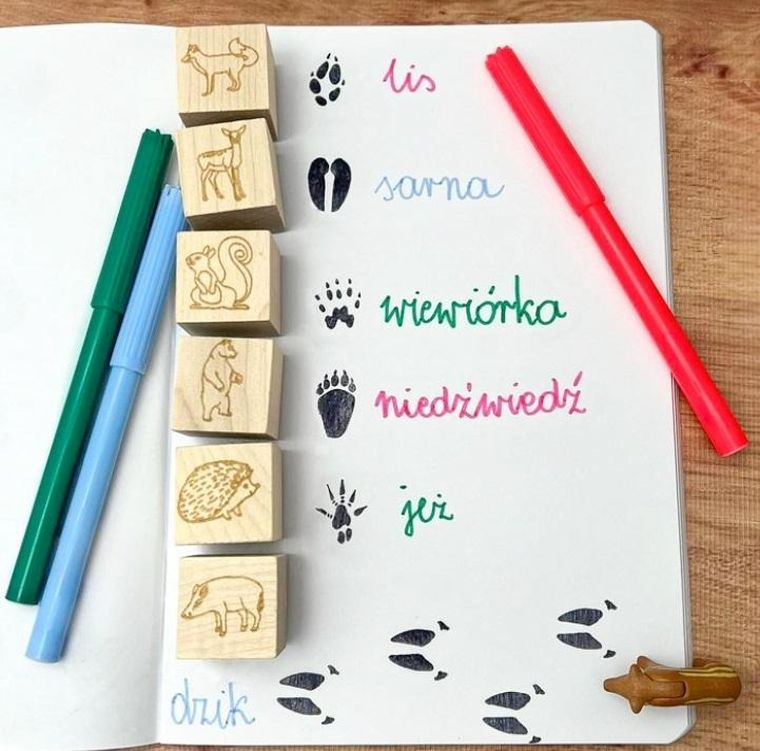 lis
sarna
wiewiórka
niedźwiedź
jeż
dzik